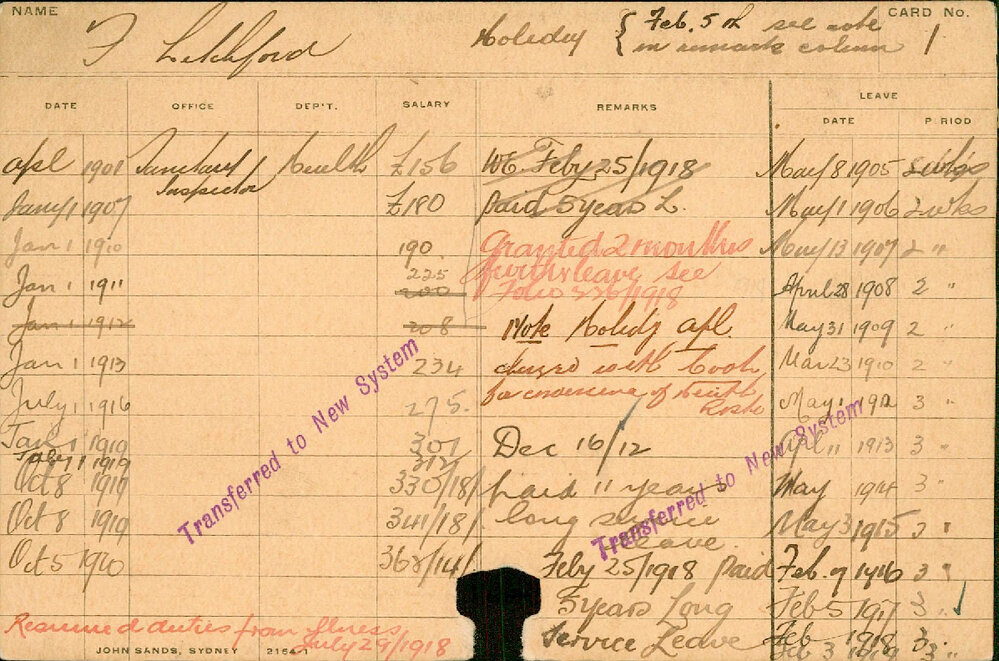 NAME
F Letchford
Holiday { Feb. 5th see note
in remark column
CARD No.
1
DATE OFFICE DEP'T. SALARY REMARKS LEAVE
DATE PERIOD
Apl 1901 Sanitary Health £156
Inspector
Jany 1 1907 £180
Jan 1 1910 190
225
Jan 1 1911 200
Jan 1 1912 208
Jan 1 1913 234
July 1 1916 275.
Jan 1 1919 301
July 1 1919 312
Oct 8 1919 330/18/
Oct 8 1919 341/18/
Oct 5 1920 362/14/
WE Feby 25/1918
paid 5 years L.
Granted 2 months
further leave see
Folio 336/1918
Note Holidy apl.
with Cook
for of
Dec 16/12
paid 11 years
long service
leave
Feby 25/1918 paid
5 years Long
Service Leave
May 8 1905 2 wks
May 1 1906 2 wks
May 13 1907 2 "
April 28 1908 2 "
May 31 1909 2 "
Mar 23 1910 2 "
May 1 1912 3 "
April 11 1913 3 "
May 1914 3 "
May 3 1915 3 "
Feb. 7 1916 3 "
Feb 5 1917 3 "
Feb 1918 3 "
Feb 3 1919 3 "
Transferred to New System
Transferred to New System
Resumed duties from illness
July 29/1918
JOHN SANDS, SYDNEY